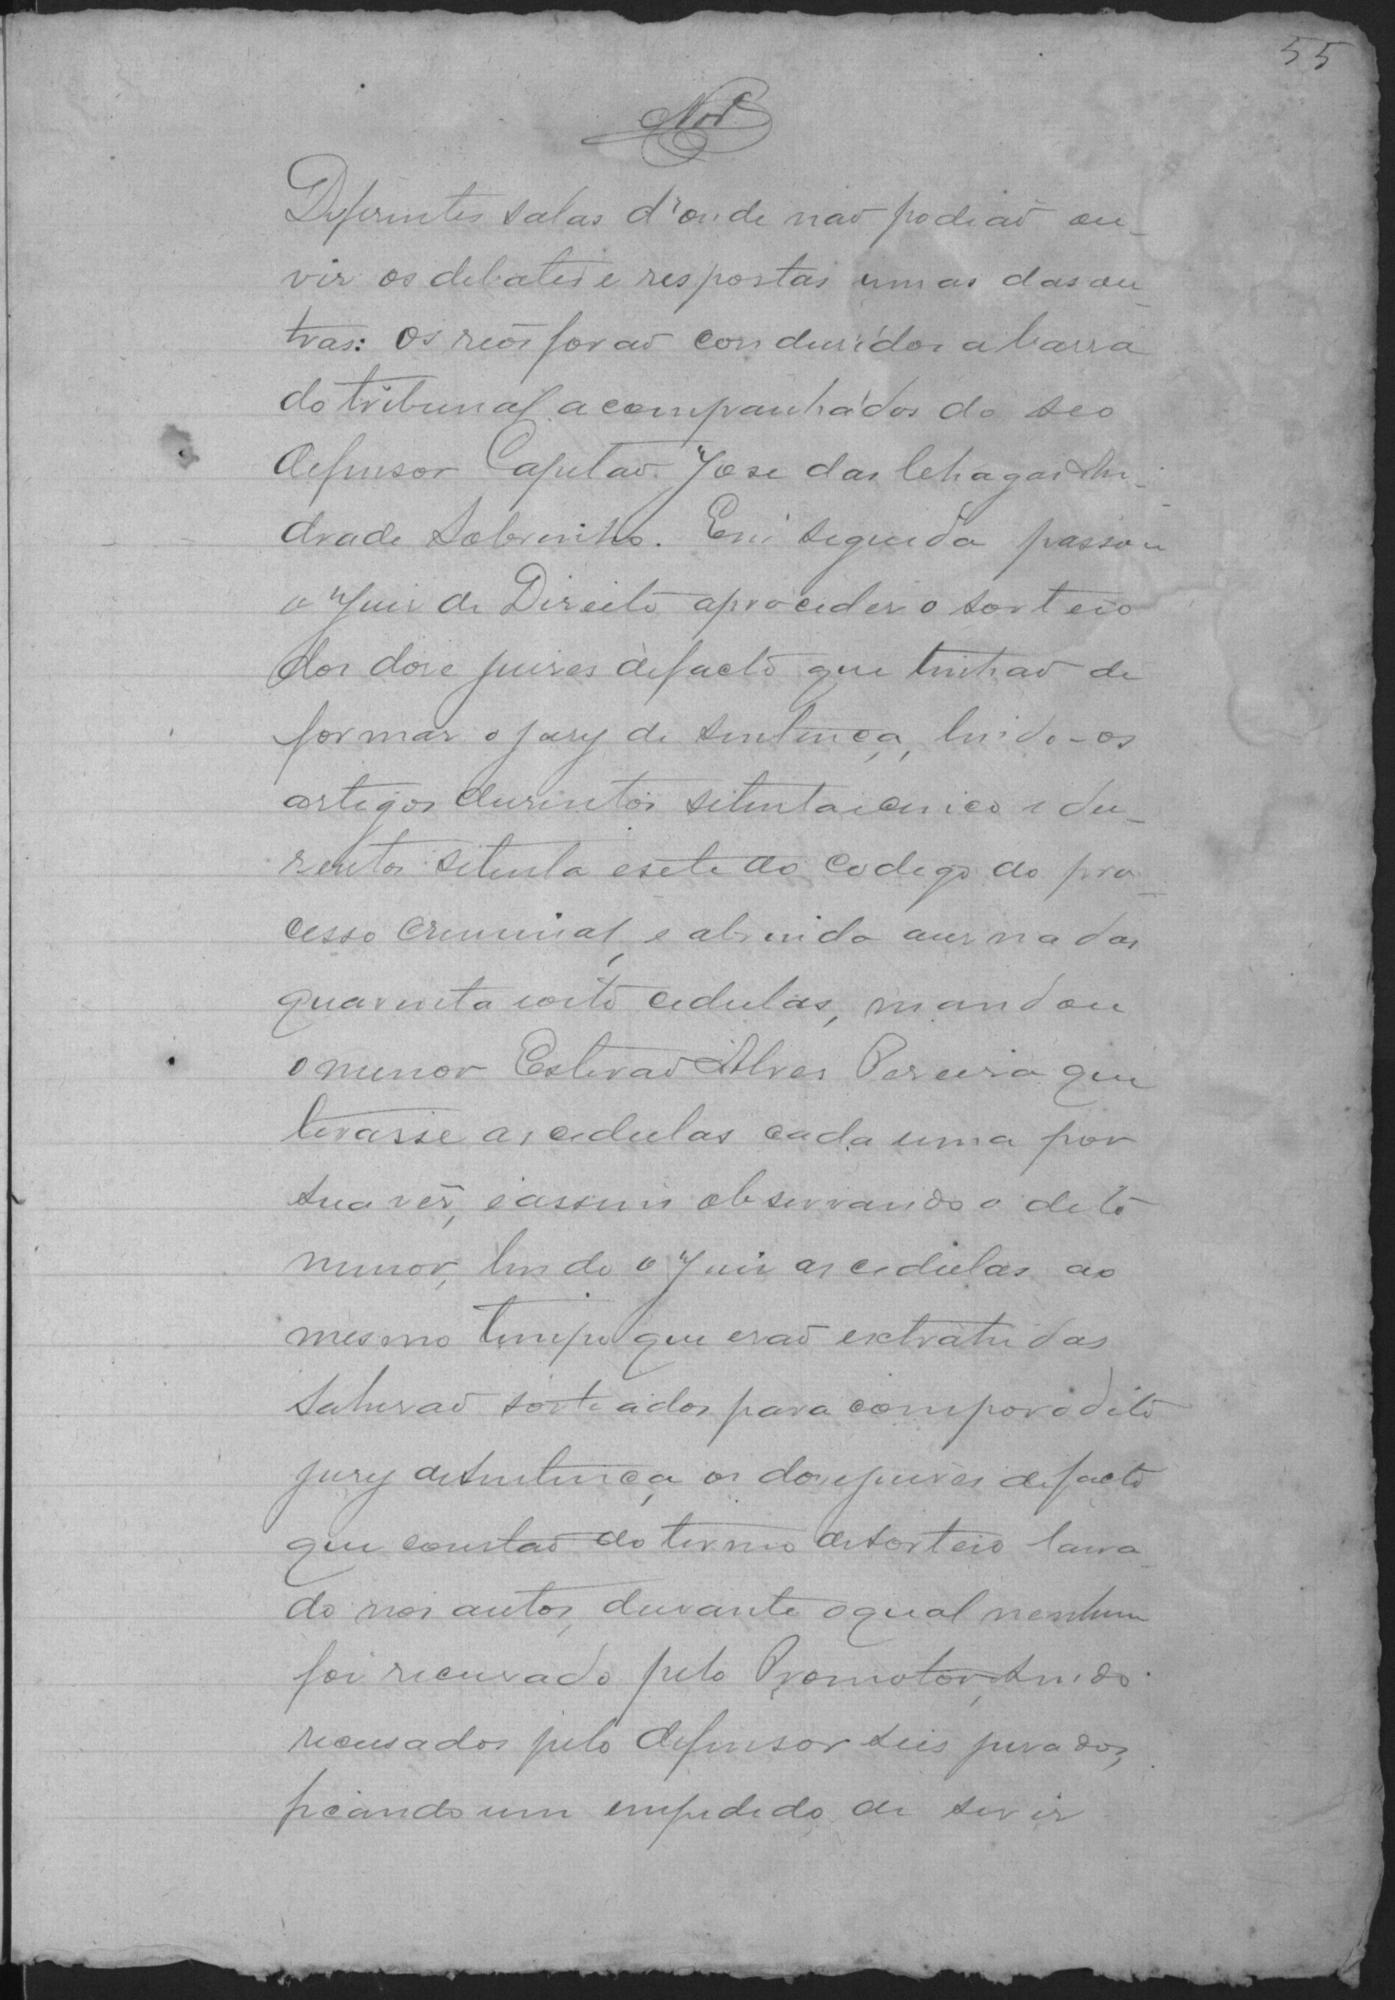 55
Diferentes salas d'onde não podião ou-
vir os debates e respostas umas das ou-
tras: Os reos forão condusidos a barra
do tribunal acompanhados do seo
defensor Capitão Jose das Chagas An-
drade Sobrinho. Em seguida passou
o Juis de Direito a proceder o sorteio
dos dose juises de facto que tinhão de
formar o jury de sentença, lendo-os
artigos dusentos setenta e cinco e du-
sentos setenta e sete do codego do pro-
cesso criminal, e abrindo a urna das
quarenta e oito cedulas, mandou
o menor Estevão Alves Pereira que
tirasse as cedulas cada uma por
sua vês, e assim observando o dito
menor, lendo o Juis as cedulas ao
mesmo tempo que erão extrahidas
sahirão sorteados para compor o dito
jury de sentença os dose juises de facto
que constão do termo de sorteio lavra-
do nos autos, durante o qual nenhum
foi recusado pelo Promotor, sendo
recusados pelo defensor seis jurados,
ficando um empedido de servir